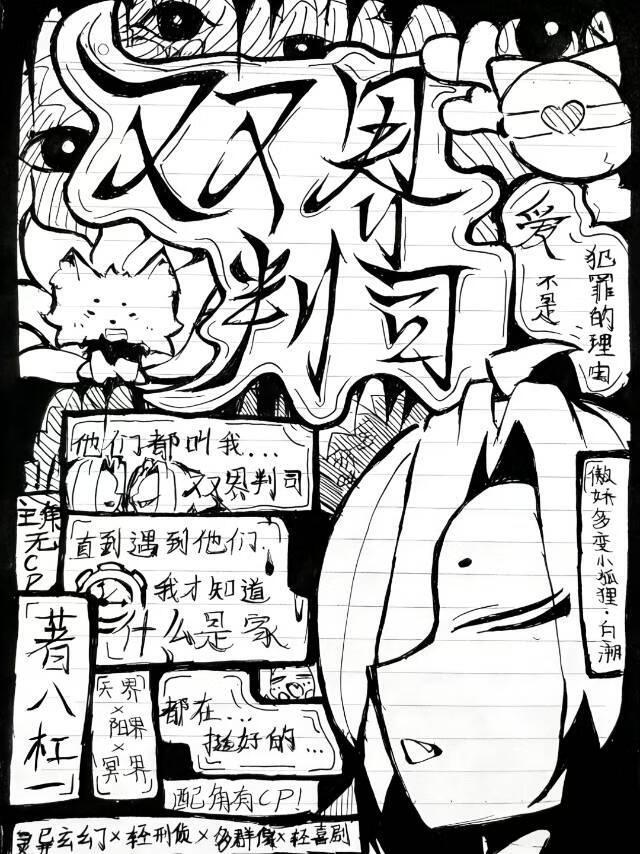 双界
判司
爱
不是
犯罪的理由
他们都叫我...
双界判司
直到遇到他们
我才知道
什么是家
主集
无CP
「著八杠一」
天界
×
阳界
×
冥界
都在...
挺好的...
配角有CP!
傲娇多变小狐狸·白溯
灵异玄幻×轻刑侦×多群像×轻喜剧